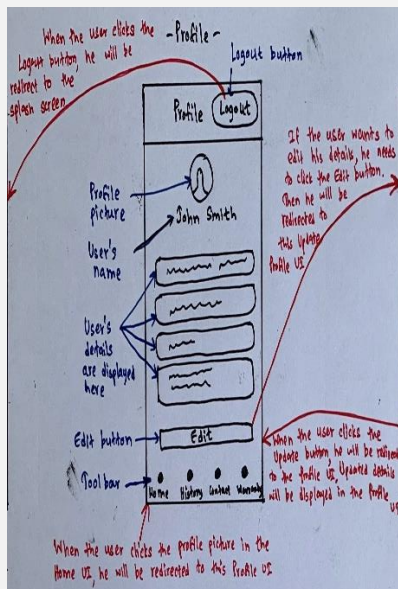 - Profile -
When the user clicks the
Logout button, he will be
redirect to the
splash screen
Logout button
Profile
Logout
If the user wounts to
edit his details, he needs
to click the Edit button.
Then he will be
redirected to
this Update
Profile UI
Profile
picture
John Smith
User's
name
User's
details
are displayed
here
Edit button
Edit
When the user clicks the
Update button, he will be redirected
to the Profile UI, Updated details
will be displayed in the Profile
UI
Tool bar
Home
History
Contact
Warranty
When the user clicks the profile picture in the
Home UI, he will be redirected to this Profile UI